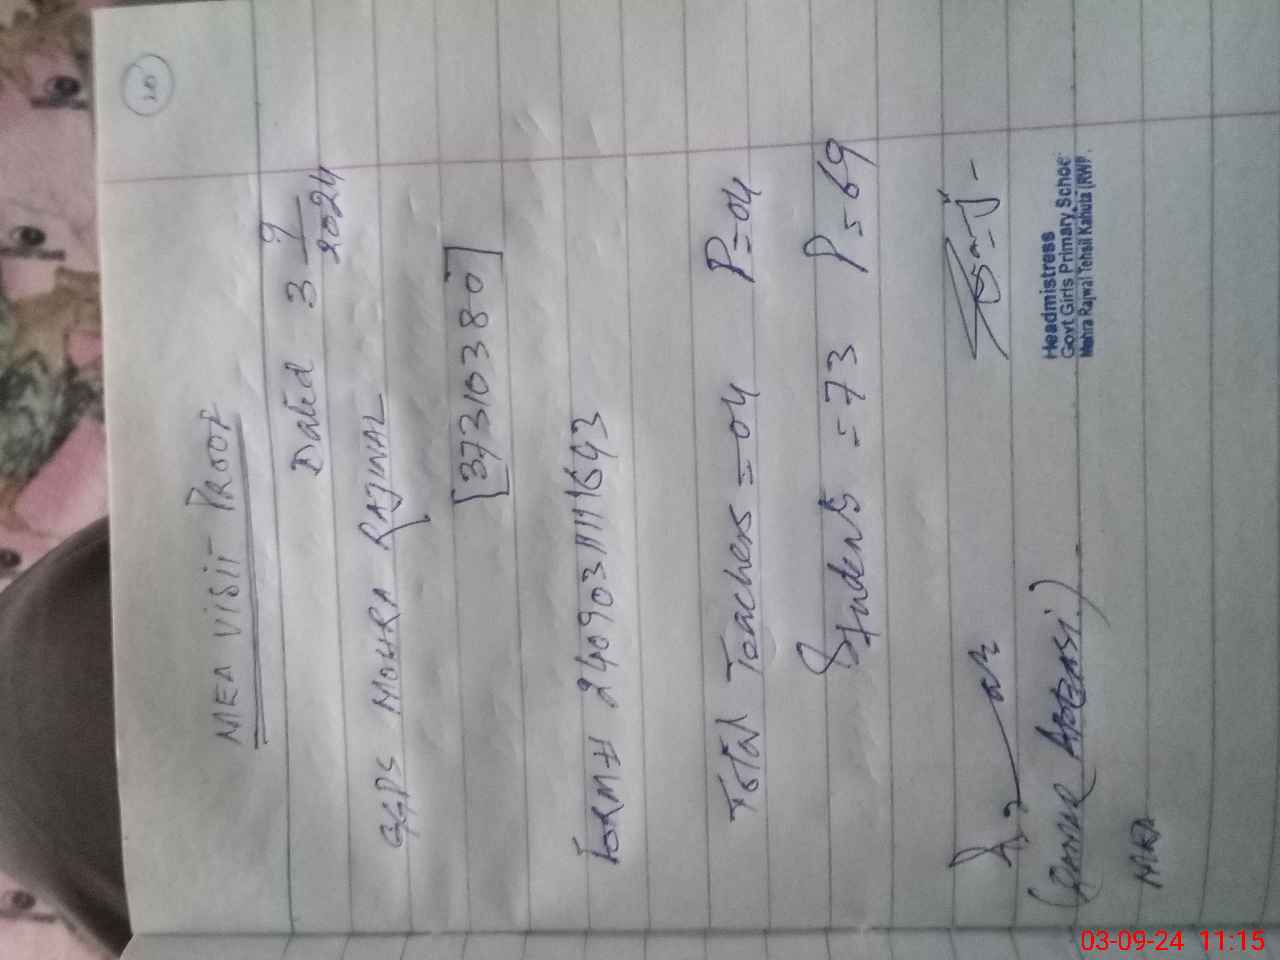 20
MEA VISIT PROOF
Dated 3 9/2024
GGPS MOHRA RAJWAL
[37310380]
FORM # 240903111643
Total Teachers = 04 P = 04
Students = 73 P = 69
Headmistress
Govt Girls Primary School
Mohra Rajwal Tehsil Kahuta (RWP)
MEA
03-09-24 11:15